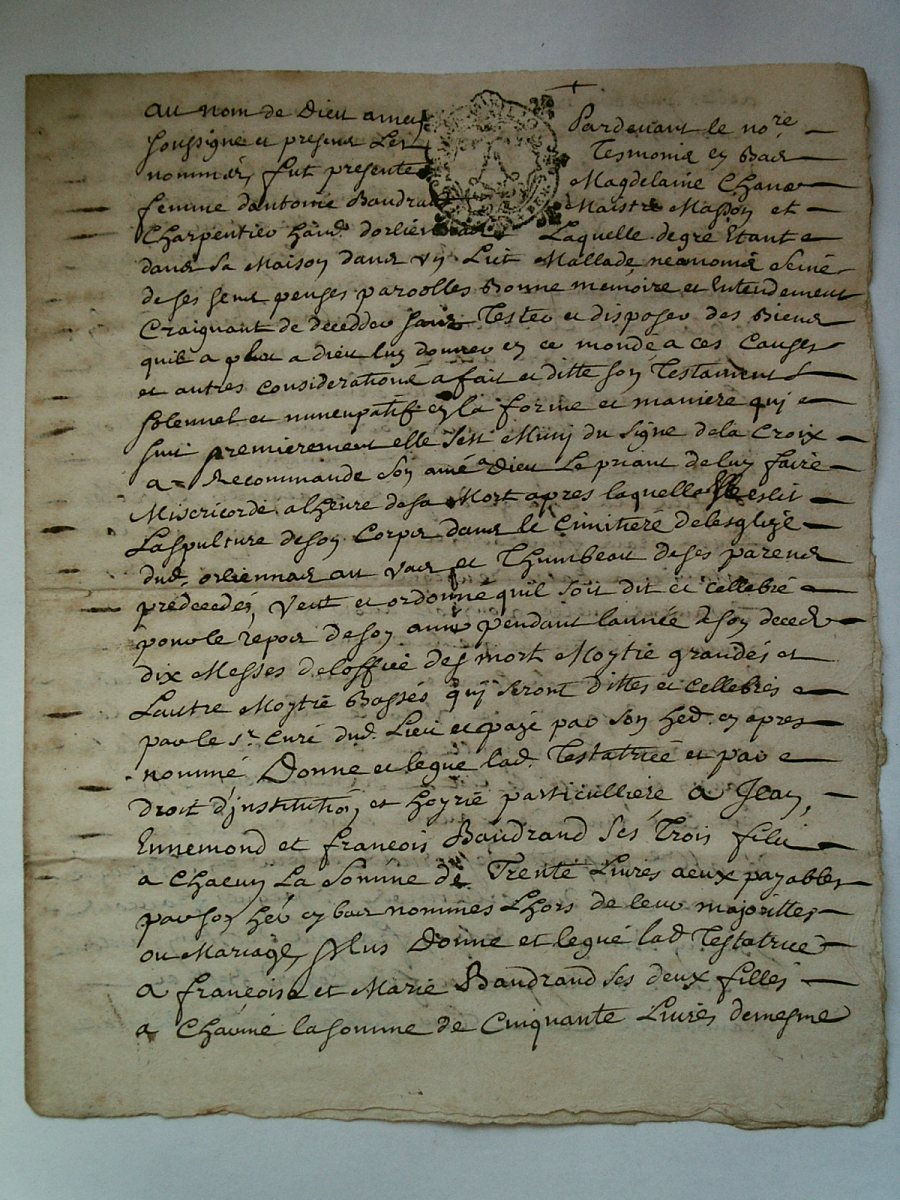 au nom de Dieu amen Pardevant le no.re
soussigne et presens Les Tesmoins en Bas
nommés, fut presente Magdelaine Chana
femme dantoine Baudrand Maistre Masson et
Charpentier hânt dorlienas Laquelle degre Etant
dans sa Maison dans un Lict Mallade neanmoins seine
de ses sens penses parolles Bonne memoire et Entendement
Craignant de decedder sans Tester et disposer des Biens
quil a plut a dieu luy donner en ce monde a ces Causes
et autres considerations a fait et ditte son Testament
solennel et nuncupatif en la forme et maniere qui
suit premierement elle sest Muni du signe de la Croix
a Recommande son ame a Dieu Le priant de luy faire
Misericorde a lheure de sa Mort apres laquelle eslit
Laspulture de son Corps dans le Cimitiere delesglize
dud. orliennas au Vas et Thumbeau de ses parens
predecedés, Veut et ordonne quil soit dit et cellebré
pour le repos de son ame pendant lannée deson deced
dix Messes de loffice des mort Moytié grandes et
Lautre Moytié Basses qui seront dittes et cellebrés
par le sr. Curé dud. Lieu et payé par son hed. cy apres
nommé Donne et legue lad. Testatrice et par
droit d'institution, et hoyrie particulliere a Jean,
Ennemond et françois Baudrand ses Trois fils
a Chacun La Somme de Trente Livres a eux payables
par son her en bas nommes Lhors de leur majorittes
ou Mariage, plus Donne et legue lad Testatrice
a françoise et Marie Baudrand ses deux filles
a Chacune la somme de Cinquante Livres demesme